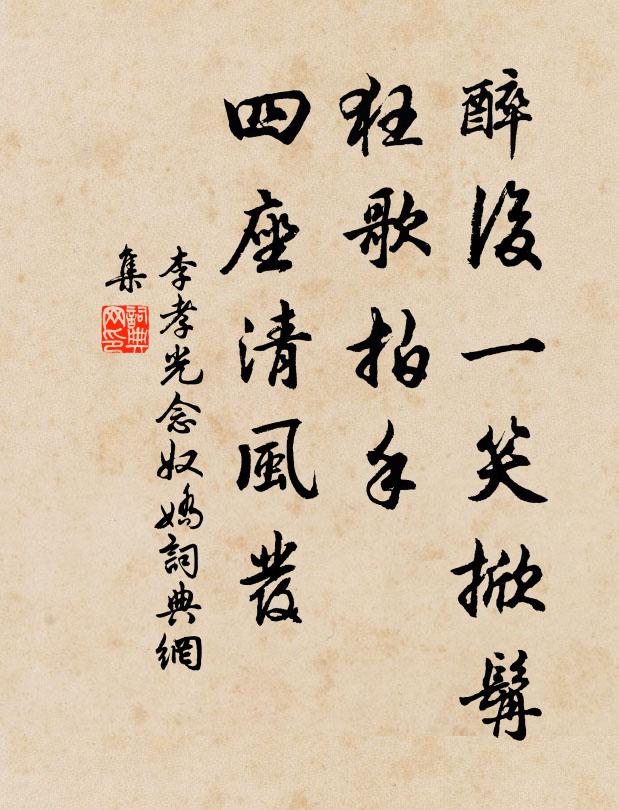 醉後一笑掀髯
狂歌拍手
四座清風發
李孝光念奴嬌詞典網
集
詞典
网印